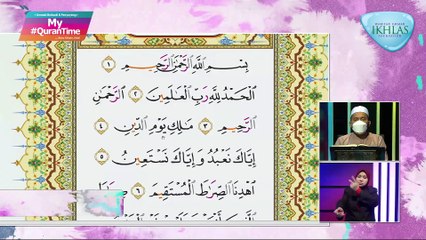 My
#QuranTime
IKHLAS
بِسْمِ ٱللَّهِ ٱلرَّحْمَٰنِ ٱلرَّحِيمِ ١
ٱلْحَمْدُ لِلَّهِ رَبِّ ٱلْعَٰلَمِينَ ٢ ٱلرَّحْمَٰنِ
ٱلرَّحِيمِ ٣ مَٰلِكِ يَوْمِ ٱلدِّينِ ٤
إِيَّاكَ نَعْبُدُ وَإِيَّاكَ نَسْتَعِينُ ٥
ٱهْدِنَا ٱلصِّرَٰطَ ٱلْمُسْتَقِيمَ ٦ صِرَٰطَ